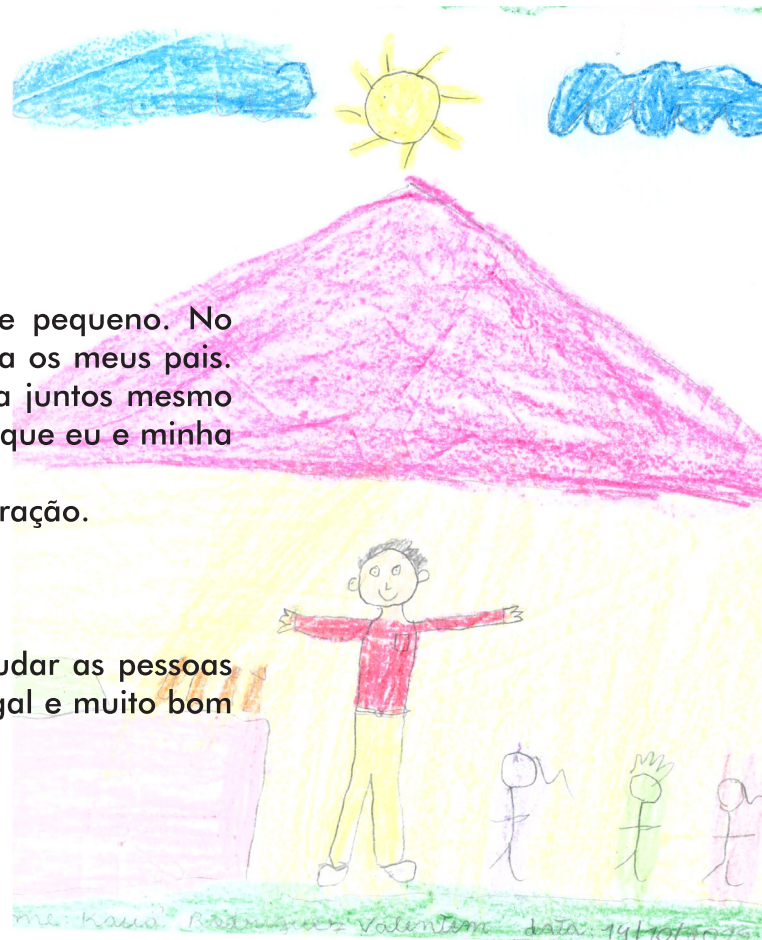 e pequeno. No
a os meus pais.
a juntos mesmo
que eu e minha
ração.
udar as pessoas
gal e muito bom
me: Kauã Rodrigues Valentim data: 14/10/